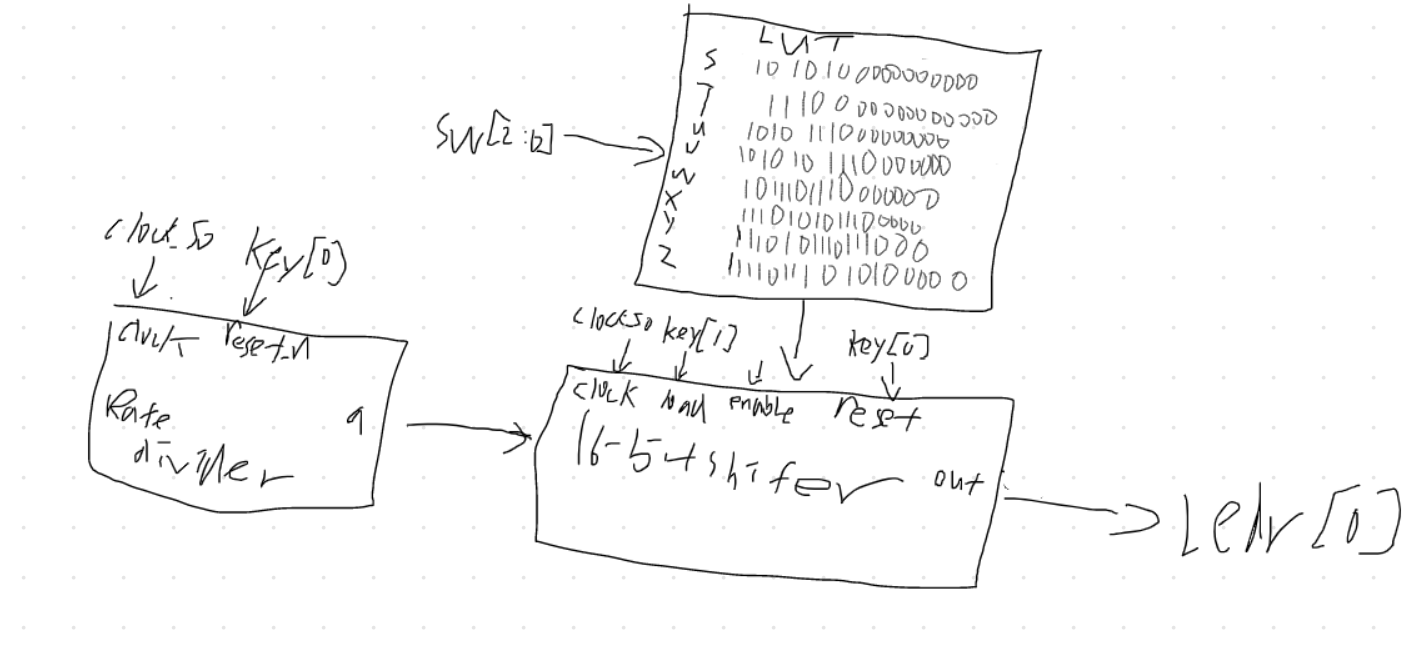 LUT
S 10 10 10 0000000000
T 1110 0 00000000000
U 1010 111000000000
V 101010 1110000000
W 1011101110000000
X 1110101011100000
Y 1110101110111000
Z 11110111 01010000 0
SW[2:0]
Clock_50 Key[0]
Clock reset_n
Rate q
divider
clock50 key[1] key[0]
clock load enable reset
16-bit shifer out
Ledr[0]